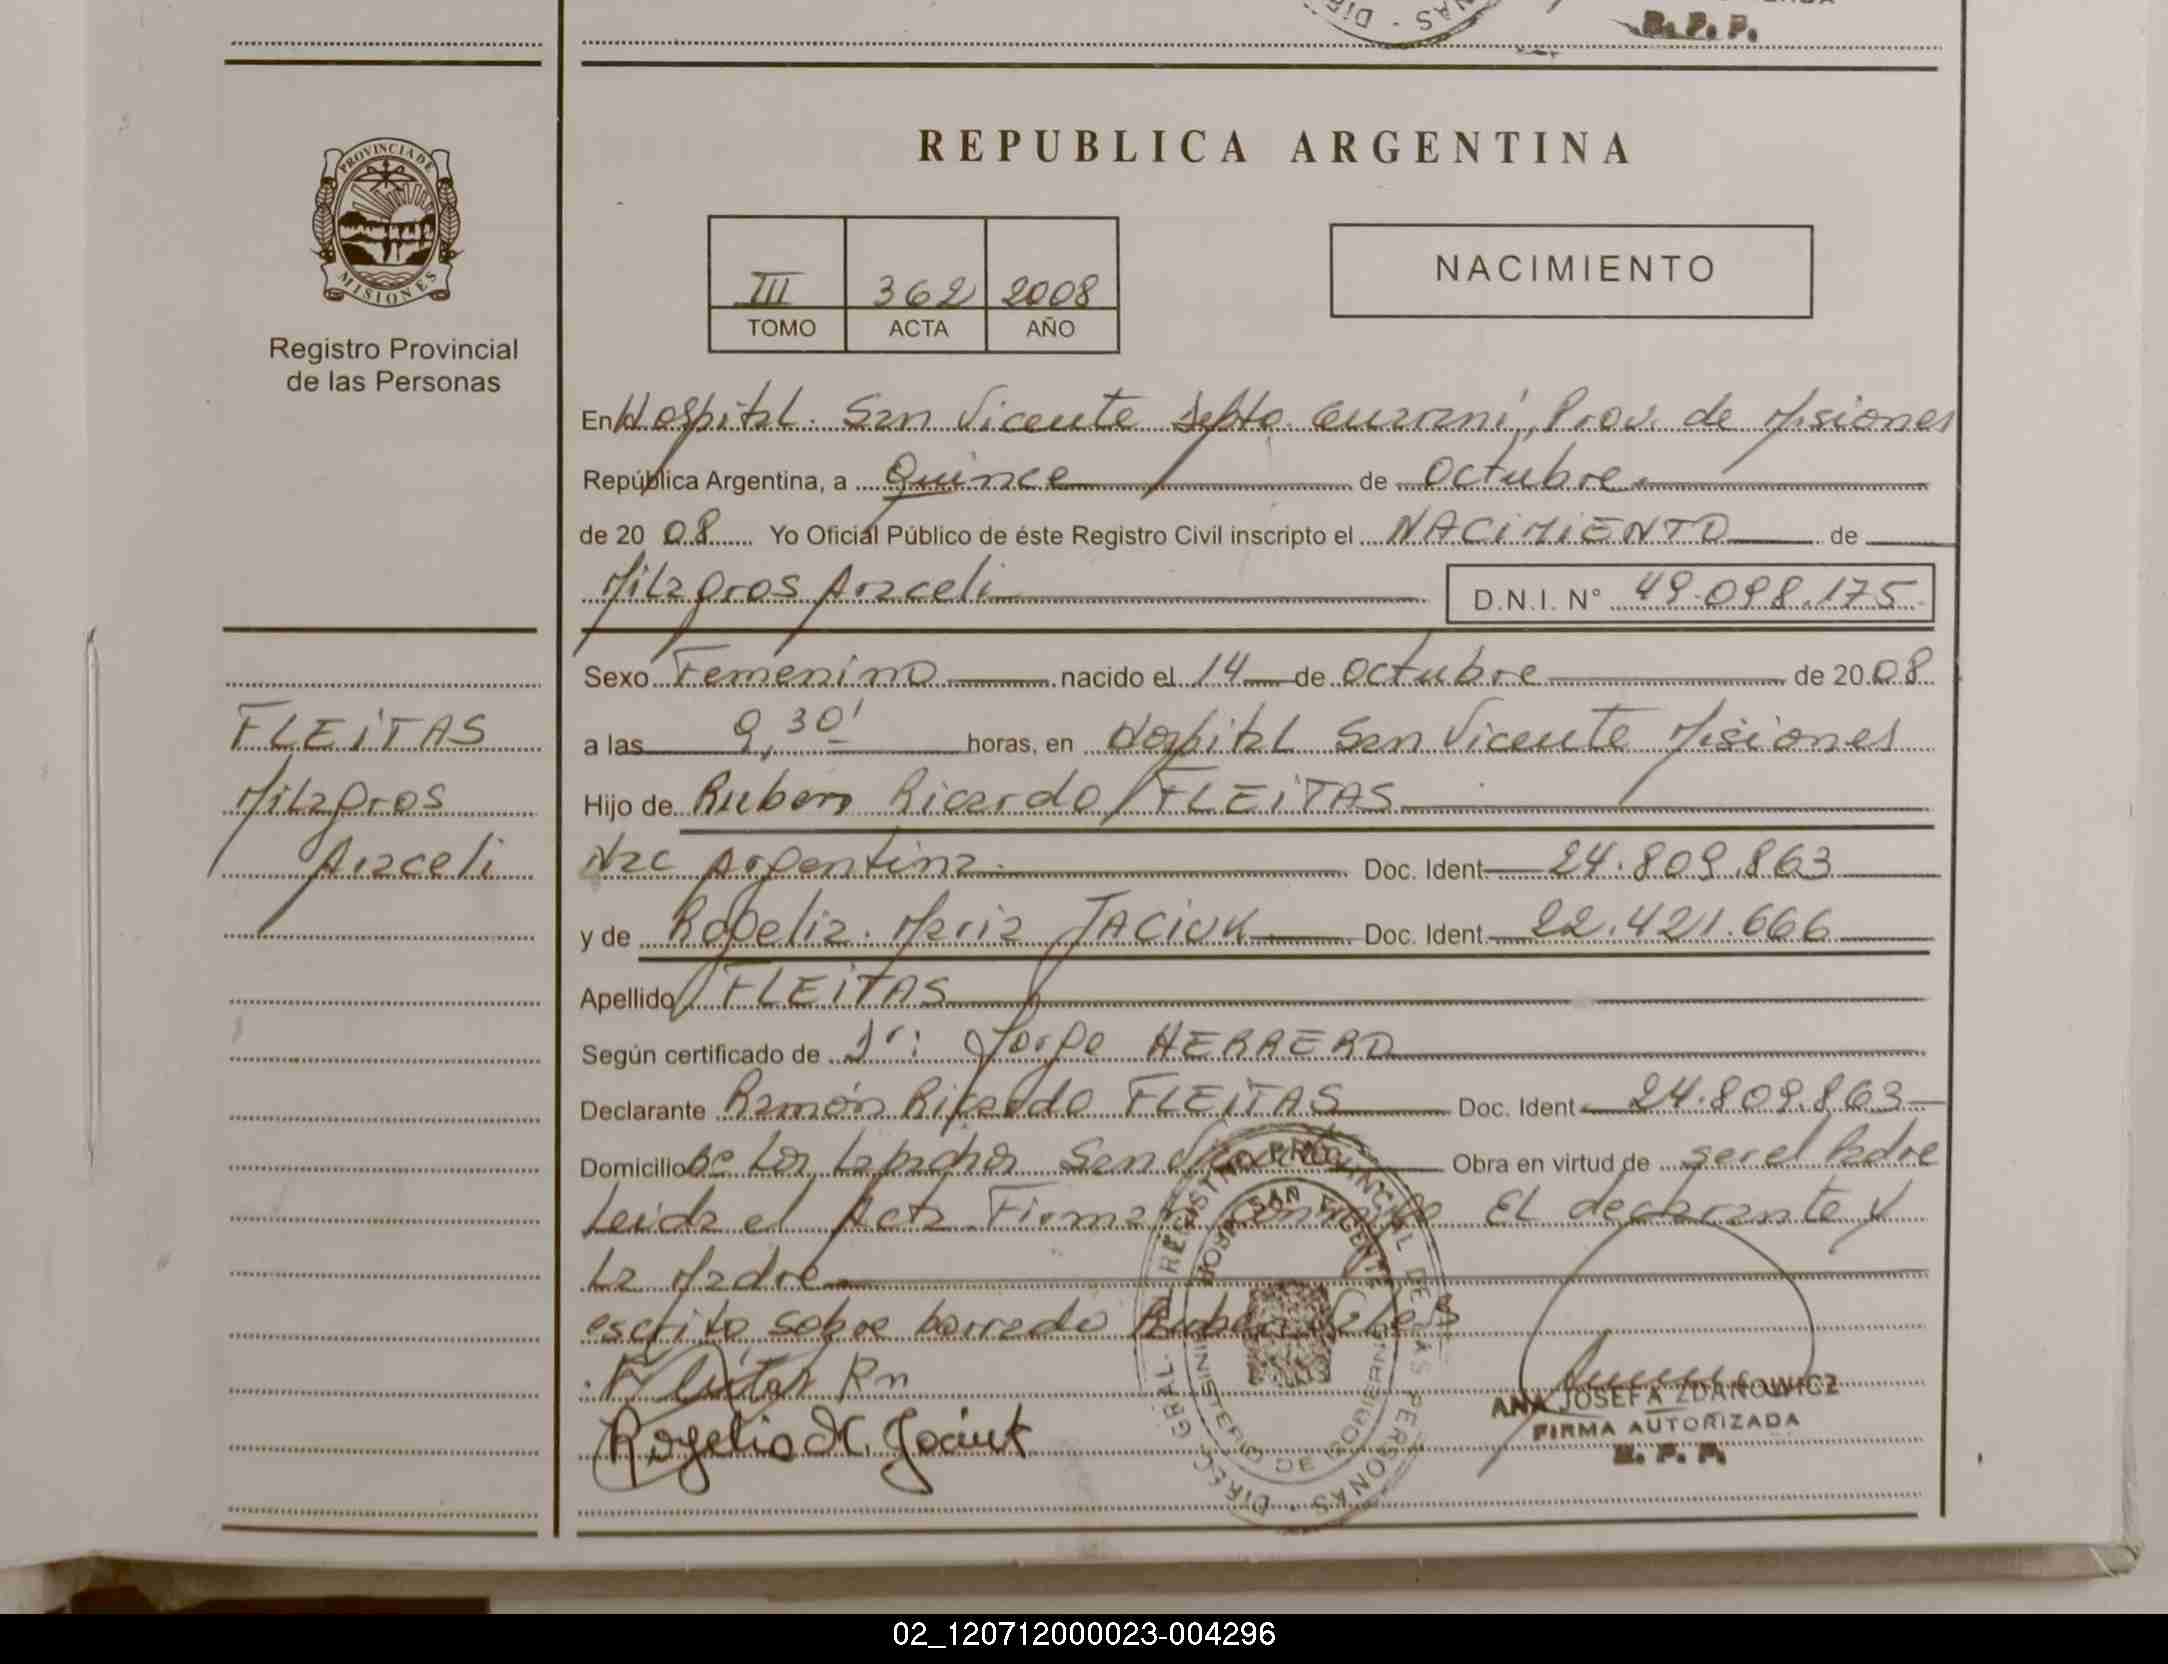 R. P. P.
PROVINCIA DE
MISIONES
Registro Provincial
de las Personas
REPUBLICA ARGENTINA
III 362 2008
TOMO ACTA AÑO
NACIMIENTO
En Hospital. San Vicente Depto. Guaraní, Prov. de Misiones
República Argentina, a Quince de Octubre
de 2008 Yo Oficial Público de éste Registro Civil inscripto el NACIMIENTO de
Milagros Araceli D.N.I. N° 49.098.175
Sexo Femenino nacido el 14 de octubre de 2008
FLEITAS
Milagros
Araceli
a las 9,30' horas, en Hospital San Vicente Misiones
Hijo de Ruben Ricardo FLEITAS
Nac Argentina. Doc. Ident. 24.809.863
y de Rogelia. Maria JACIUK Doc. Ident. 22.421.666
Apellido FLEITAS
Según certificado de Dr: Jorge HERRERO
Declarante Ramón Ricardo FLEITAS Doc. Ident. 24.809.863
Domicilio Bº Los Lapachos San Vicente Obra en virtud de ser el Padre
Leida el Acta Firma conmigo EL declarante y
La Madre
escrito sobre borrado Ruben
Fleitas Rn
Rogelia M. Jaciuk
DIREC. GRAL. REGISTRO PROVINCIAL DE LAS PERSONAS
SAN VICENTE
MINISTERIO DE GOBIERNO
ANA JOSEFA ZDANOWICZ
FIRMA AUTORIZADA
R. P. P.
02_120712000023-004296